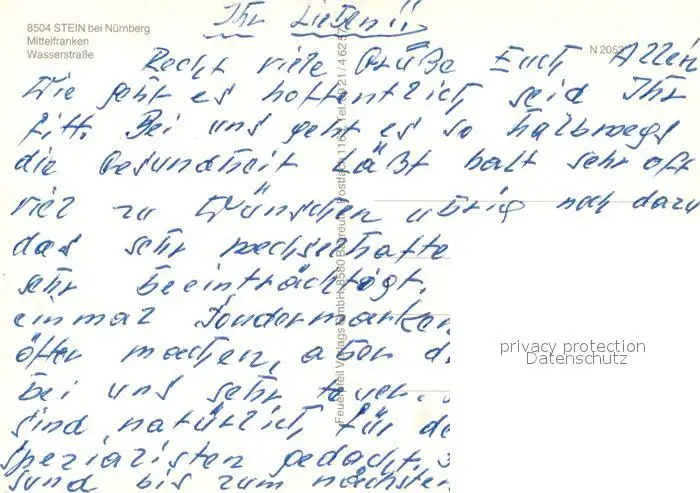 8504 STEIN bei Nürnberg
Mittelfranken
Wasserstraße
N 2052
Ihr Lieben!!
Recht viele Grüße Euch Allen
Wie geht es hoffentlich seid Ihr
fitt. Bei uns geht es so halbwegs
die Gesundheit Läßt halt sehr oft
viel zu Wünschen übrig noch dazu
das sehr wechselhafte
sehr beeinträchtigt.
einmal Sondermarken
öfter machen, aber
bei uns sehr teuer.
sind natürlich für
spezialisten gedacht.
sund bis zum nächsten
Feuerpfeil Verlags GmbH, 8580 Bayreuth, Postfach
privacy protection
Datenschutz